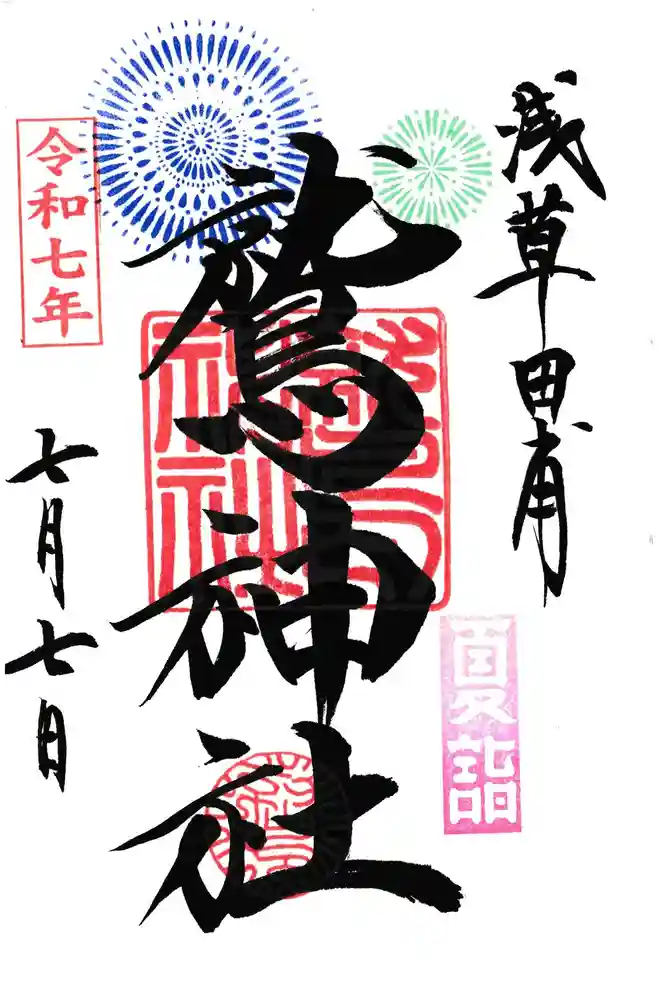 浅草田甫
鷲神社
令和七年
七月七日
夏詣